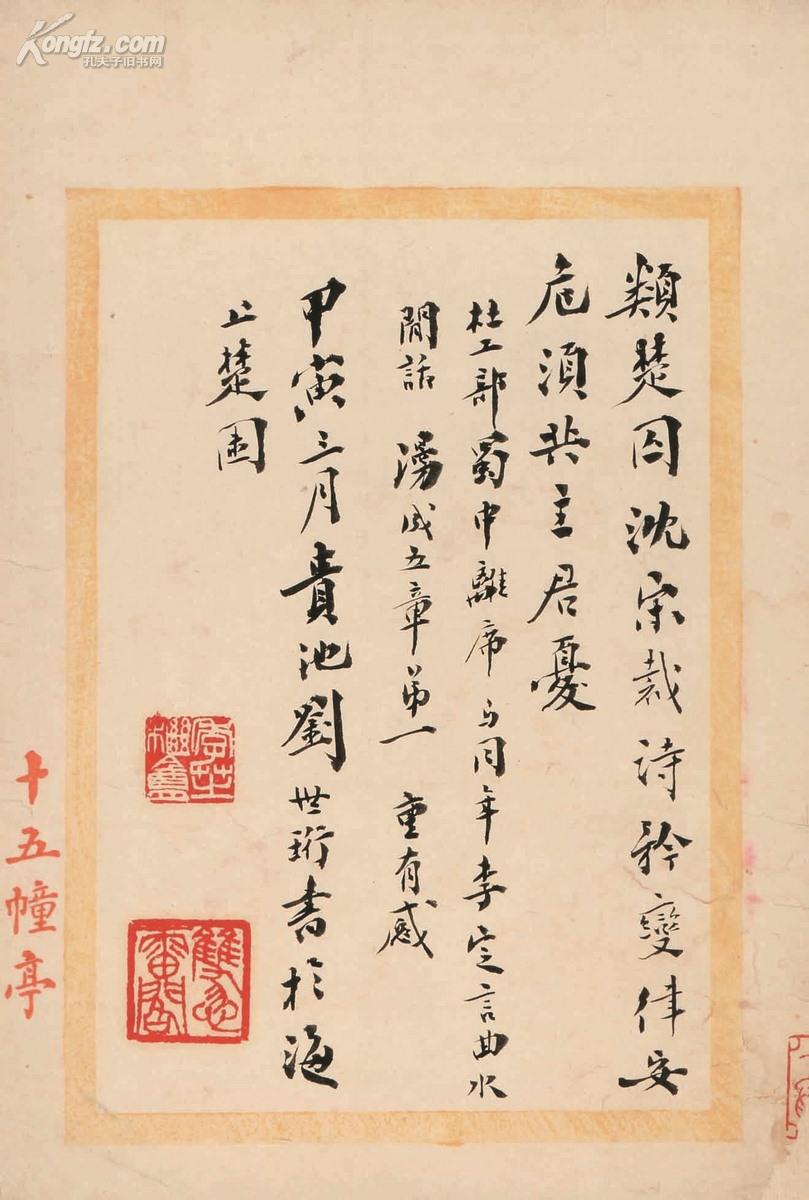 類楚囚沈宋裁詩矜變律安
危須共主君憂
杜工部蜀中離席与同年李定言曲水
閒話 漫成五章第一 重有感
甲寅三月貴池劉世珩書於海
上楚園
十五幢亭
Kongfz.com
孔夫子旧书网